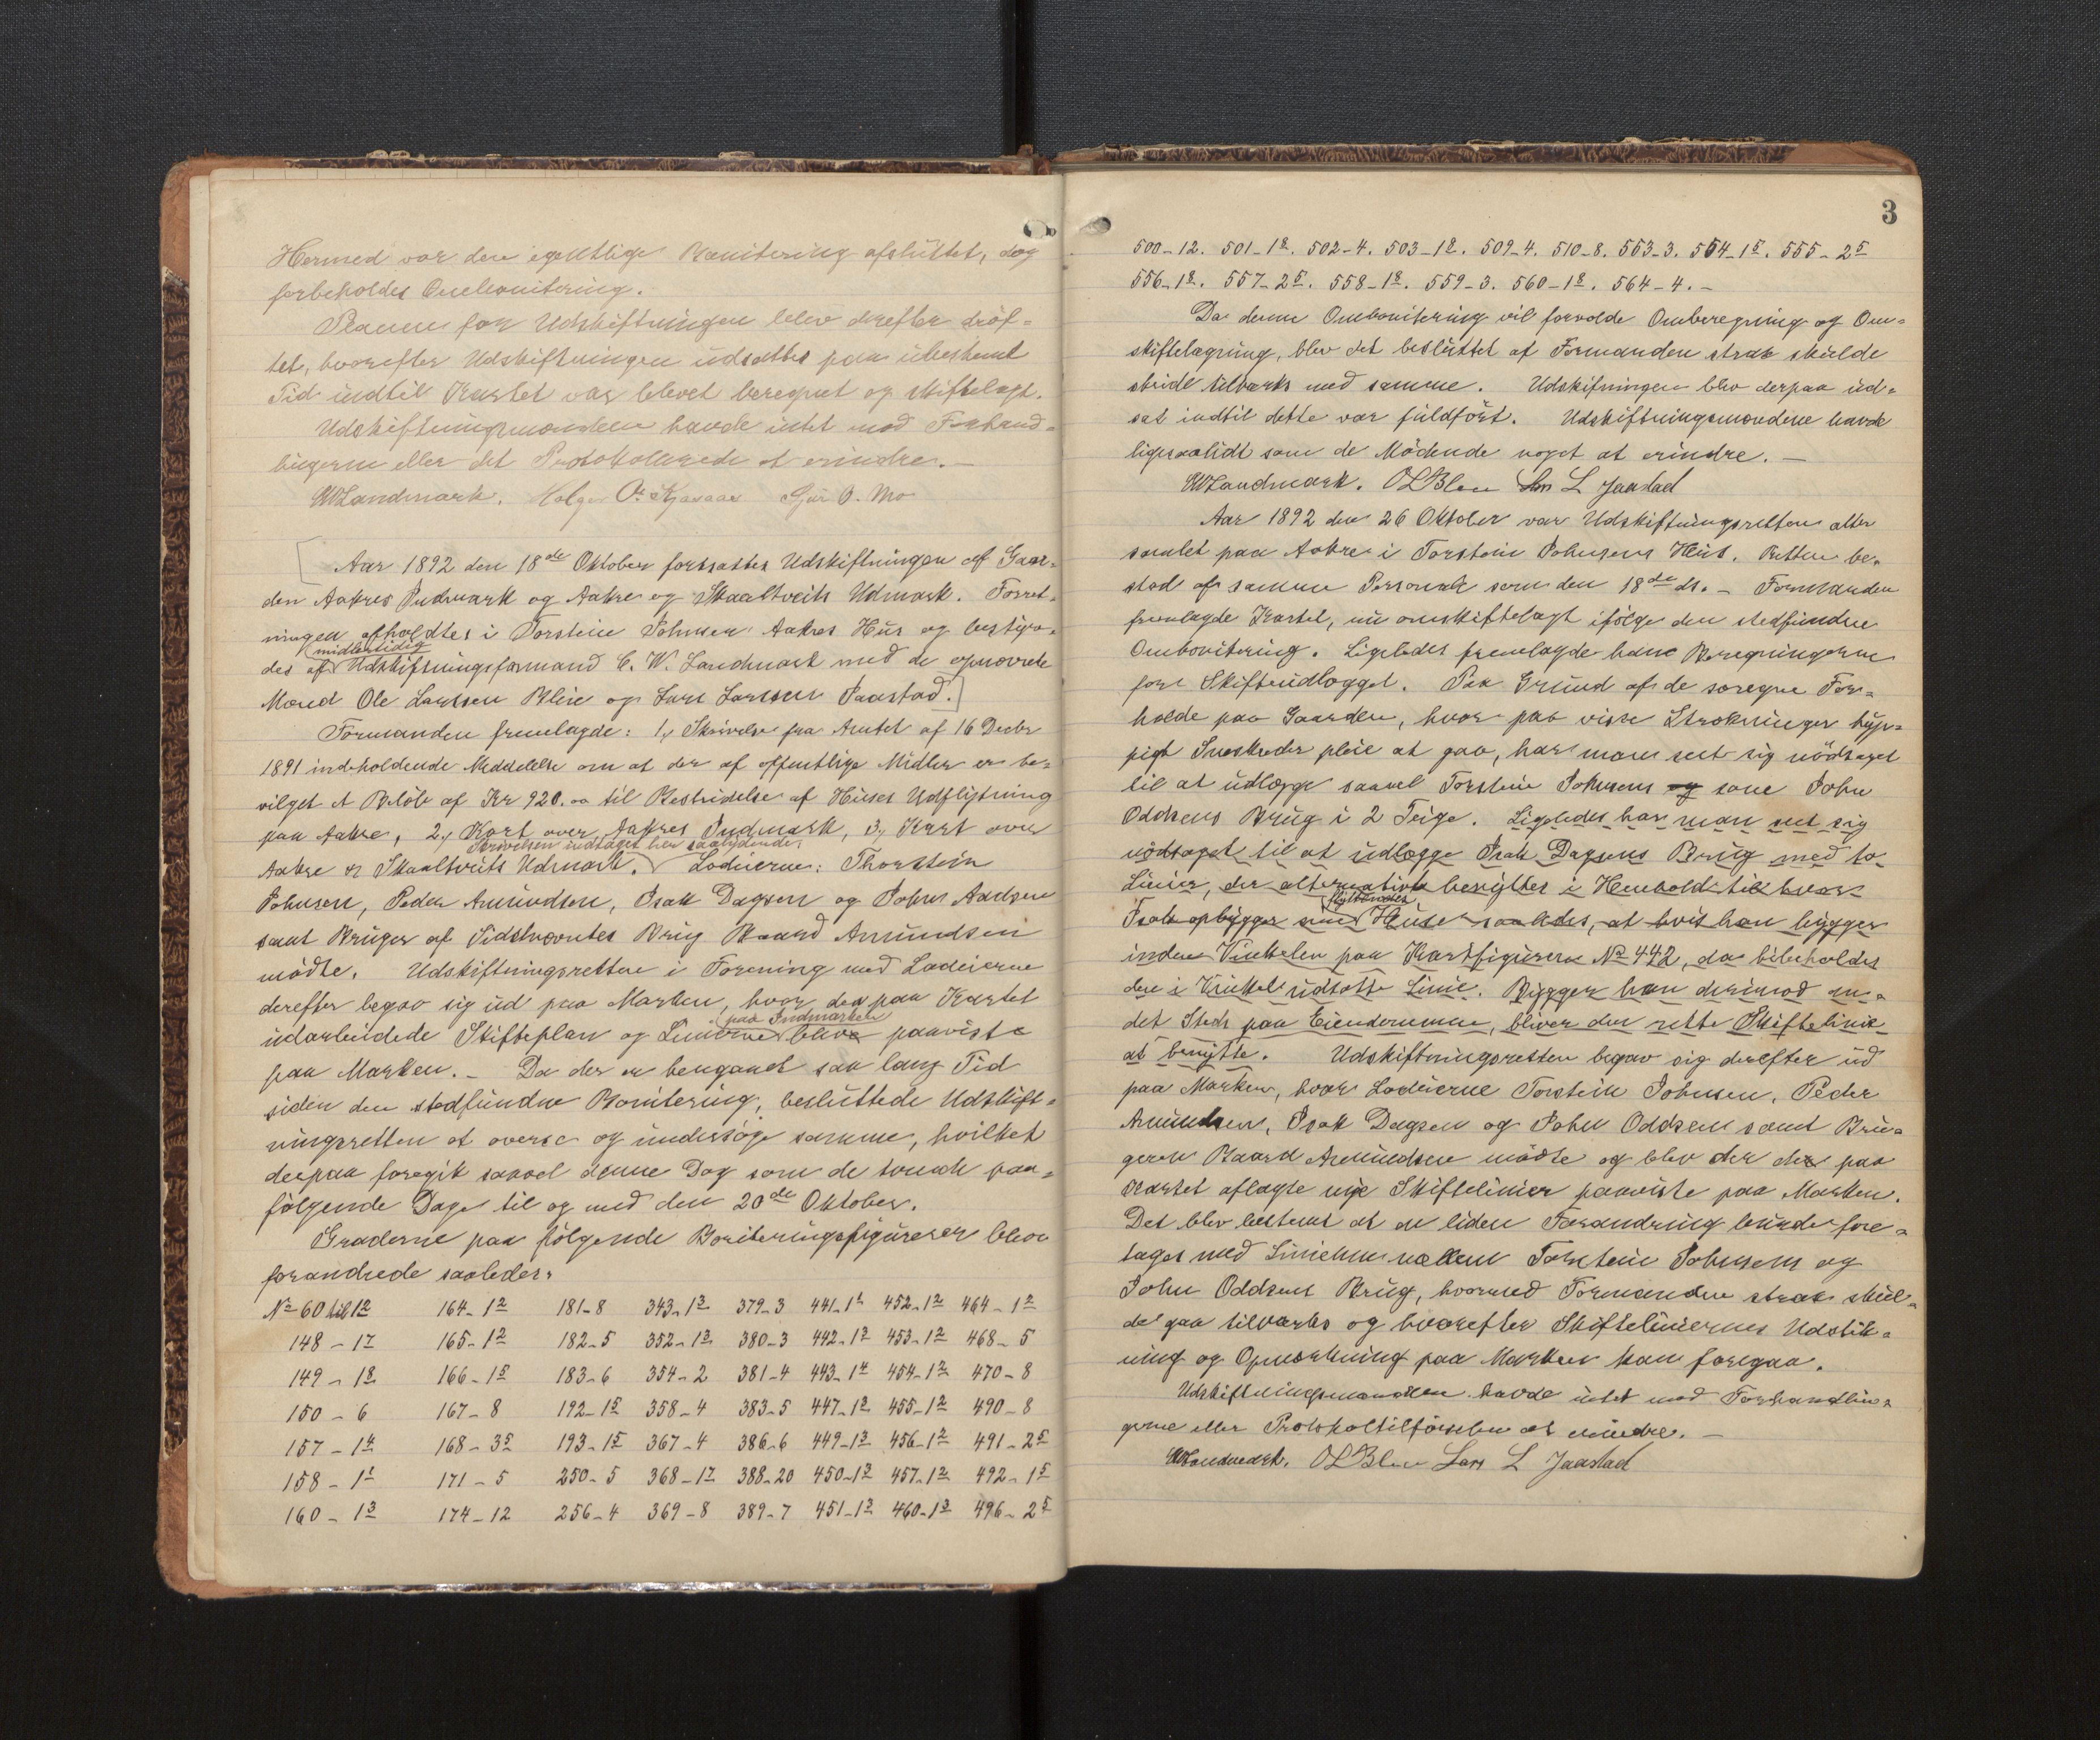 Hermed var den egentlige Bonitering afsluttet, dog
forbeholdes Ombonitering.
Planen for Udskiftningen blev derefter dröf-
tet, hvorefter Udskiftningen udsattes paa ubestemt
Tid indtil Kartet var blevet beregnet og skiftelagt.
Udskiftningsmændene havde intet mod Forhand-
lingerne eller det Protokollerede at erindre. —
CWLandmark. Holger Sjur O. Mo
Aar 1892 den 18de Oktober fortsattes Udskiftningen af Gaar-
den Aakres Indmark og Aakre og Skaaltveits Udmark. Forret-
ningen afholdtes i Torstein Johnsen Aakres Hus og bestyre-
midlertidig
des af Udskiftningsformand C. W. Landmark med de opnævnte
Mænd Ole Larssen Bleie og Lars Larssen Jaastad.
Formanden fremlagde: 1, Skrivelse fra Amtet af 16 Decbr
1891 indeholdende Meddelelse om at der af offentlige Midler er be-
vilget et Beløb af Kr 920.00 til Bestridelse af Huses Udflytning
paa Aakre, 2, Kart over Aakres Indmark, 3, Kart over
Skrivelsen indtages her saalydende:
Aakre og Skaaltveits Udmark. Lodeierne: Thorstein
Johnsen, Peder Amundsen, Isak Dagsen og John Oddsen
samt Bruger af Sidstnævntes Brug Baard Amundsen
mödte. Udskiftningsretten i Forening med Lodeierne
derefter begav sig ud paa Marken, hvor den paa Kartet
paa Indmarken
udarbeidede Skifteplan og Linierne bleve paaviste
paa Marken. — Da der er hengaaet saa lang Tid
siden den stedfundne Bonitering, besluttede Udskift-
ningsretten at overse og undersöge samme, hvilket
derpaa foregik saavel denne Dag som de tvende paa-
fölgende Dage til og med den 20de Oktober.
Graderne paa fölgende Boniteringsfigurer bleve
forandrede saaledes:
No 60 til 12 164-12 181-8 343-13 379-3 441-1 452-12 464-12
148-17 165-12 182-5 352-13 380-3 442-12 453-12 468-5
149-18 166-15 183-6 354-2 381-4 443-14 454-12 470-8
150-6 167-8 192-15 358-4 383-5 447-12 455-12 490-8
157-14 168-35 193-15 367-4 386-6 449-13 456-12 491-25
158-1 171-5 250-5 368-17 388-20 450-13 457-12 492-15
160-13 174-12 256-4 369-8 389-7 451-13 460-13 496-25
3
500-12. 501-18. 502-4. 503-18. 509-4. 510-8. 553-3. 554-15. 555-25
556-18. 557-25. 558-18. 559-3. 560-18. 564-4. —
Da denne Ombonitering vil forvolde Omberegning og Om-
skiftelægning, blev det besluttet at Formanden strax skulde
skride tilværks med samme. Udskiftningen blev derpaa ud-
sat indtil dette var fuldfört. Udskiftningsmændene havde
ligesaalidt som de Mödende noget at erindre. —
CWLandmark. OLBleie Lars L Jaastad
Aar 1892 den 26 Oktober var Udskiftningsretten atter
samlet paa Aakre i Torstein Johnsens Hus. Retten be-
stod af samme Personale som den 18de ds. — Formanden
fremlagde Kartet, nu omskiftelagt ifölge den stedfundne
Ombonitering. Ligeledes fremlagde han Beregningerne
for Skifteudlægget. Paa Grund af de særegne For-
holde paa Gaarden, hvor paa visse Strækninger hyp-
pigt Sneskreder pleie at gaa, har man seet sig nödsaget
til at udlægge saavel Torstein Johnsens og som John
Oddsens Brug i 2 Teige. Ligeledes har man seet sig
nödsaget til at udlægge Isak Dagsens Brug med to
Linier, der alternativt benyttes i Henhold til hvor
flyttendes
Isak opbygger sine Huse saaledes, at hvis han bygger
inden Vinkelen paa Kartfiguren No 442, da bibeholdes
den i Vinkel udsatte Linie. Bygger han derimod an-
det Steds paa Eiendommen, bliver den rette Skiftelinie
at benytte. Udskiftningsretten begav sig derefter ud
paa Marken, hvor Lodeierne Torstein Johnsen, Peder
Amundsen, Isak Dagsen og John Oddsen samt Bru-
geren Baard Amundsen mödte og blev der de paa
Kartet aflagte nye Skiftelinier paaviste paa Marken.
Det blev bestemt at en liden Forandring burde fore-
tages med Linierne mellem Torstein Johnsens og
John Oddsens Brug, hvormed Formanden strax skul-
de gaa tilværks og hvorefter Skifteliniernes Udstik-
ning og Opmerkning paa Marken kan foregaa.
Udskiftningsmændene havde intet mod Forhandlin-
gerne eller Protokoltilförselen at erindre. —
CWLandmark. OLBleie Lars L Jaastad